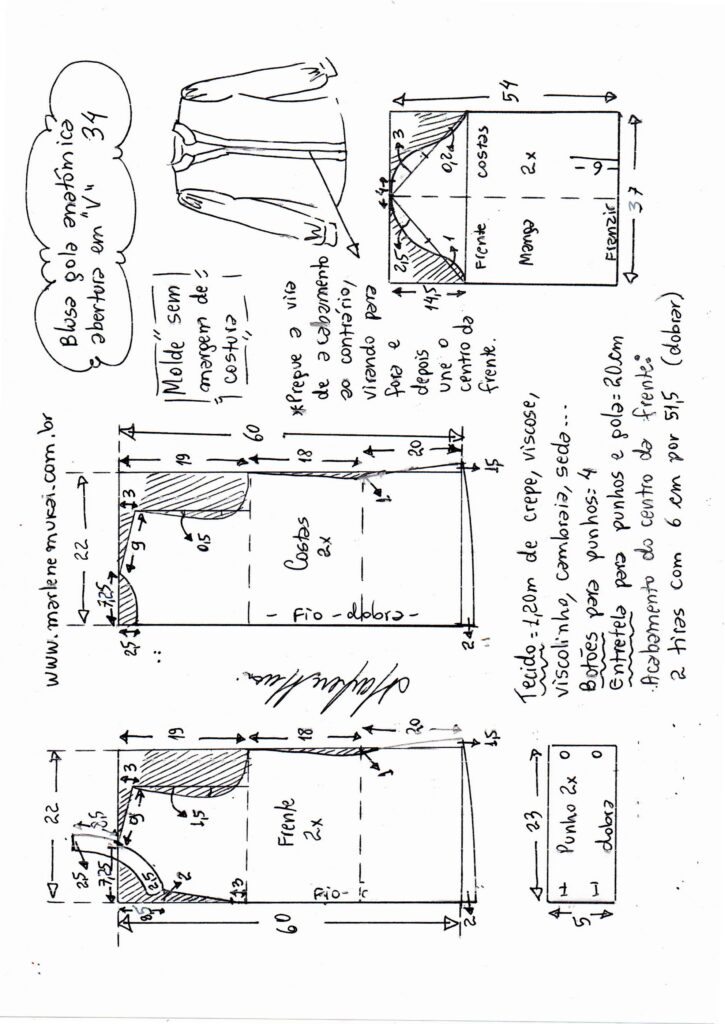 Blusa gola anatômica
abertura em "V" 34
Molde sem
margem de
costura
*Pregue a vira
de acabamento
ao contrário,
virando para
fora e
depois
une o
centro da
frente.
54
3
4
2,5
0,2
1
14,5
Frente
costas
Manga
2x
6
Franzir
37
www.marlenemukai.com.br
60
19
18
20
22
3
9
7,25
2,5
0,5
1
Costas
2x
Fio - dobra
2
1,5
22
19
18
20
3
9
2,5
2,5
7,25
2,5
2
1,5
8,5
3
1
Frente
2x
Fio
60
2
1,5
Tecido = 1,20m de crepe, viscose,
viscolinho, cambraia, seda...
Botões para punhos = 4
Entretela para punhos e gola = 20cm
Acabamento do centro da frente:
2 tiras com 6 cm por 51,5 (dobrar)
23
Punho 2x
dobra
5